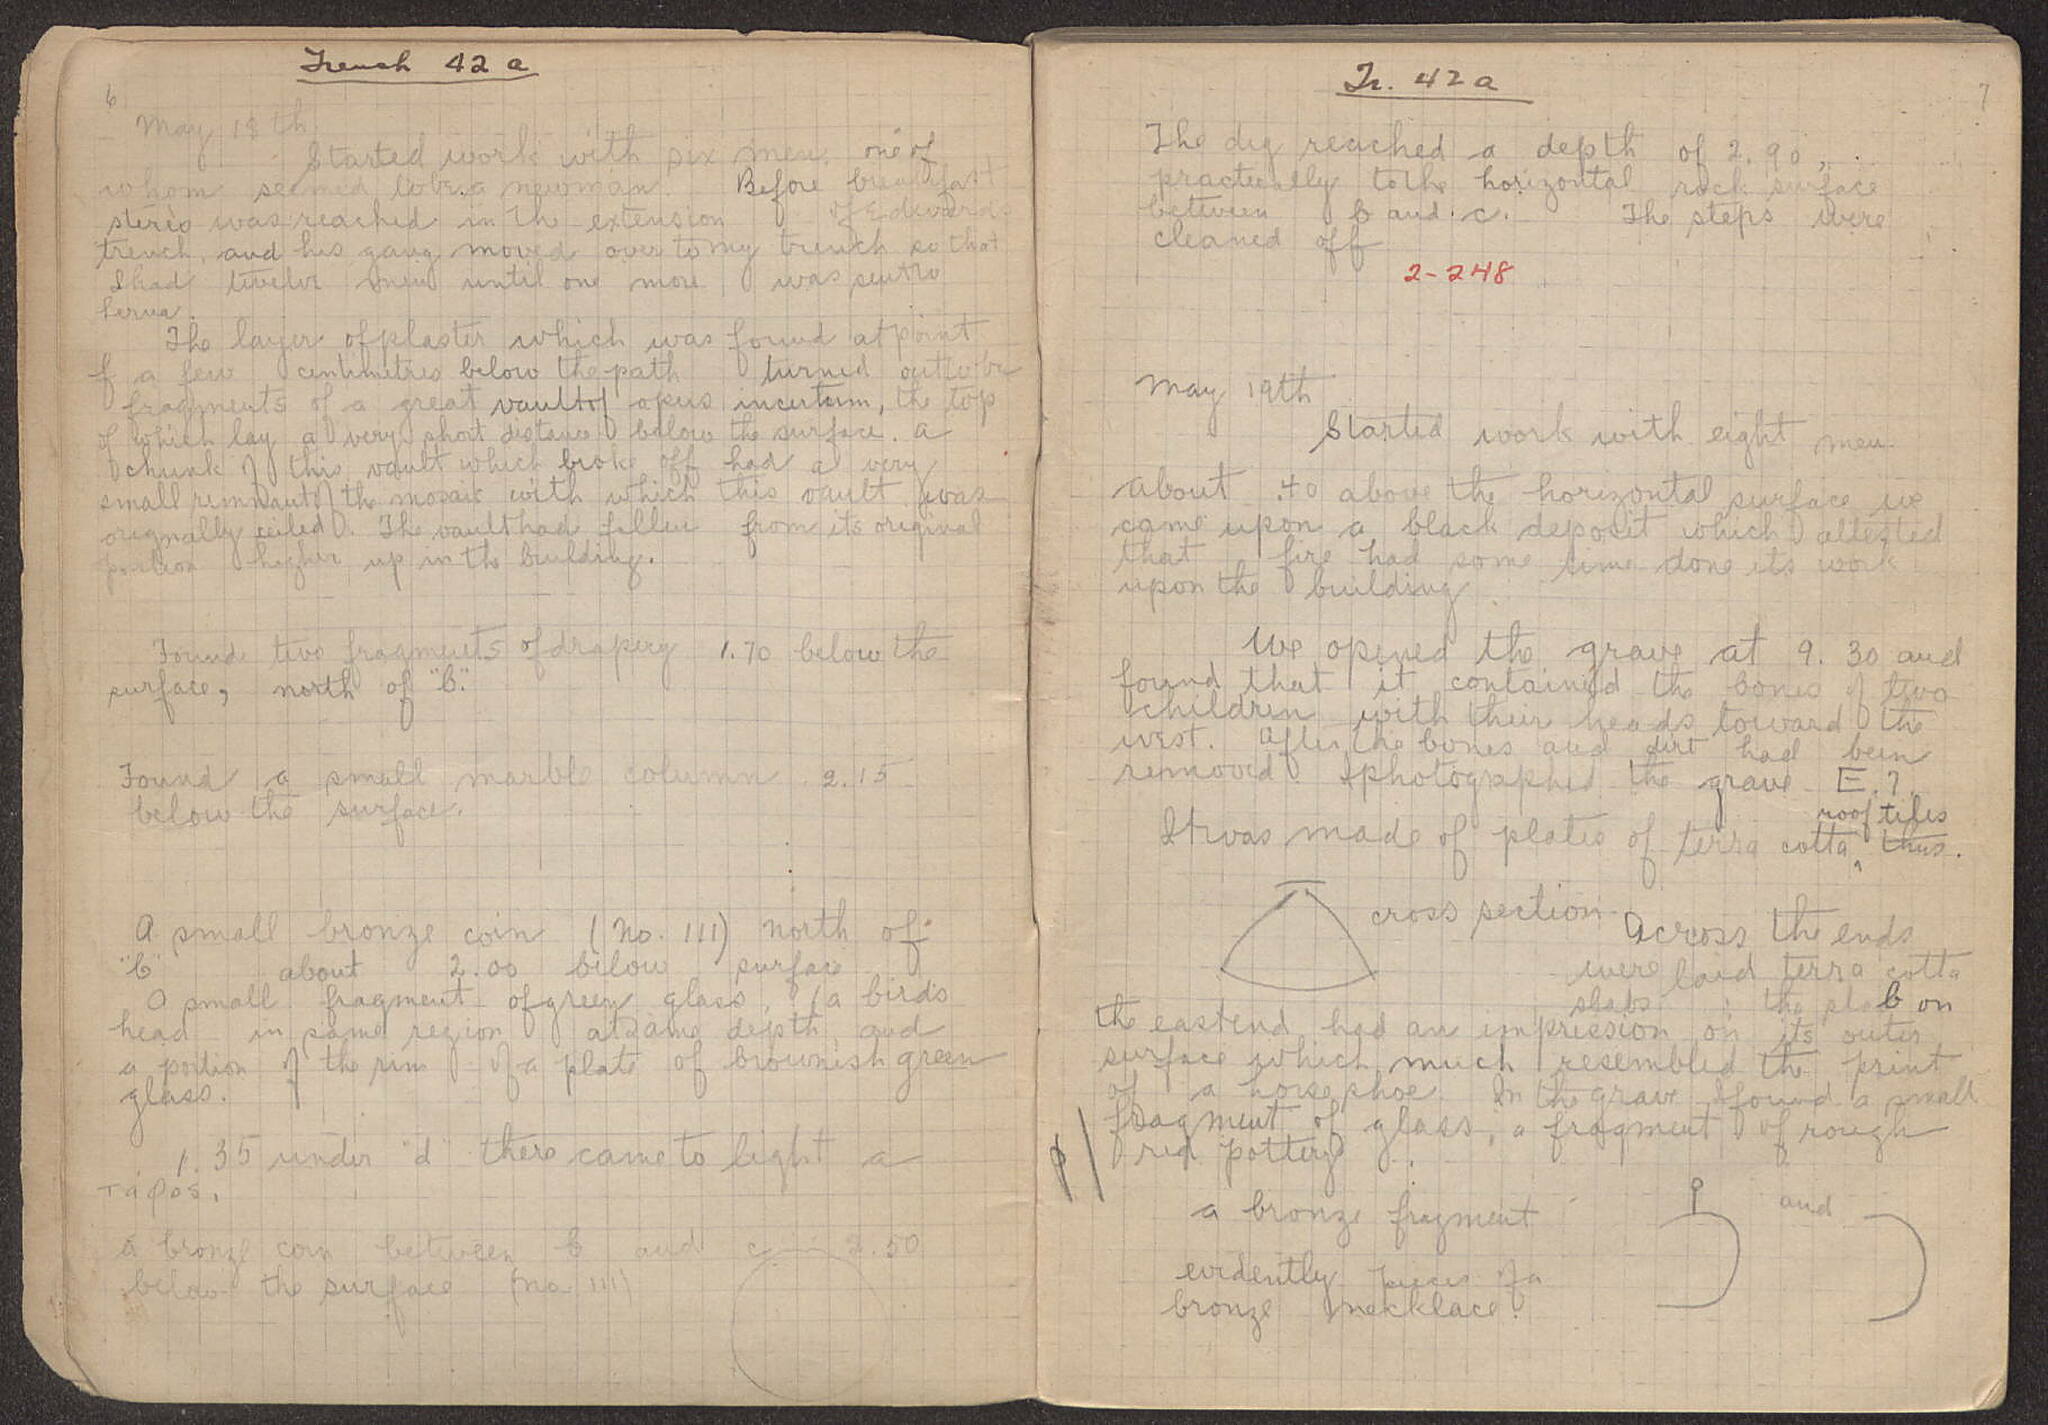 Trench 42 a
6
May 18 th
Started work with six men, one of
whom seemed to be a new man. Before breakfast
stereo was reached in the extension of Edwards
trench, and his gang moved over to my trench so that
I had twelve men until one more was sent to
The layer of plaster which was found at point
f a few centimetres below the path turned out to be
fragments of a great vault of opus incertum, the top
of which lay a very short distance below the surface. A
chunk of this vault which broke off had a very
small remnant of the mosaic with which this vault was
originally ceiled. The vault had fallen from its original
portion higher up in the building.
Found two fragments of drapery 1.70 below the
surface, north of "b."
Found a small marble column 2.15
below the surface.
A small bronze coin (No. 111) north of
"b" about 2.00 below surface
A small fragment of green glass, (a bird's
head in same region at same depth and
a portion of the rim of a plate of brownish green
glass.
1.35 under "d" there came to light a
τάφος.
a bronze coin between b and c 2.50
below the surface (no 111)
Tr. 42 a
7
The dig reached a depth of 2.90,
practically to the horizontal rock surface
between b and c. The steps were
cleaned off
2-248
May 19th
Started work with eight men
about .40 above the horizontal surface we
came upon a black deposit which attested
that fire had some time done its work
upon the building
We opened the grave at 9.30 and
found that it contained the bones of two
children with their heads toward the
west. After the bones and dirt had been
removed I photographed the grave E.7.
roof tiles
It was made of plates of terra cotta ‸ thus.
cross section
Across the ends
were laid terra cotta
slabs : the slab on
the east end had an impression on its outer
surface which much resembled the print
of a horse shoe. In the grave I found a small
fragment of glass, a fragment of rough
red pottery
a bronze fragment and
evidently pieces of a
bronze necklace.